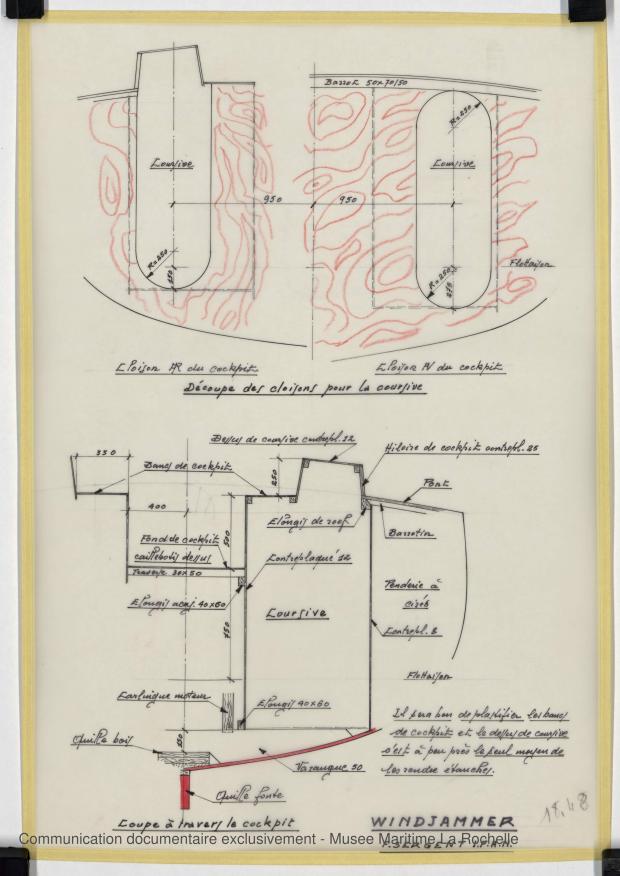 Barrot 50x70/50
Coursive
R=250
Coursive
950
950
R=250
250
R=250
250
Flottaison
Cloison AR du cockpit
Cloison AV du cockpit
Découpe des cloisons pour la coursive
Dessus de coursive contrepl. 12
Hiloire de cockpit contrepl. 25
350
Bancs de cockpit
250
Pont
400
Elongis de roof
Barrotin
500
Fond de cockpit
caillebotis dessus
Contreplaqué 12
Traverse 30x50
Penderie à
cirés
Elongis acaj. 40x60
Coursive
750
Contrepl. 8
Flottaison
Carlingue moteur
Elongis 40x60
Il sera bon de plastifier les bancs
de cockpit et le dessus de coursive
c'est à peu près le seul moyen de
les rendre étanches.
Quille bois
150
Varangue 50
Quille fonte
Coupe à travers le cockpit
WINDJAMMER
18.48
Communication documentaire exclusivement - Musee Maritime La Rochelle
J. SERGENT